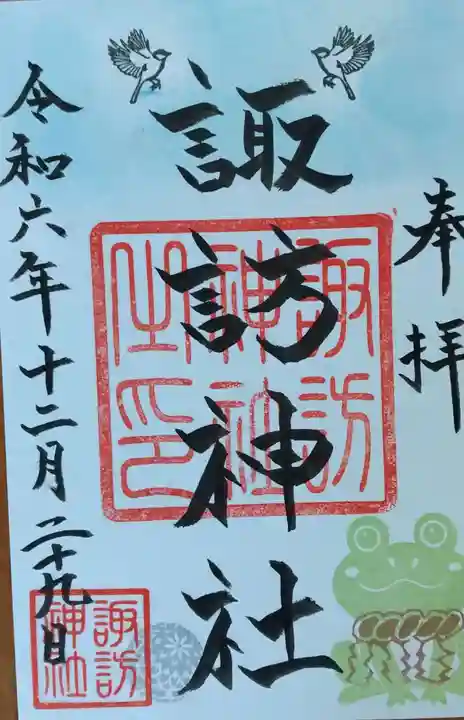 奉拝
諏訪神社
令和六年十二月二十九日
諏訪
神社
之印
諏訪
神社